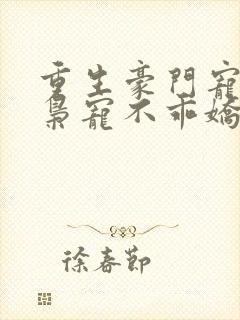 重生豪門寵
梟寵不乖嬌
徐春節